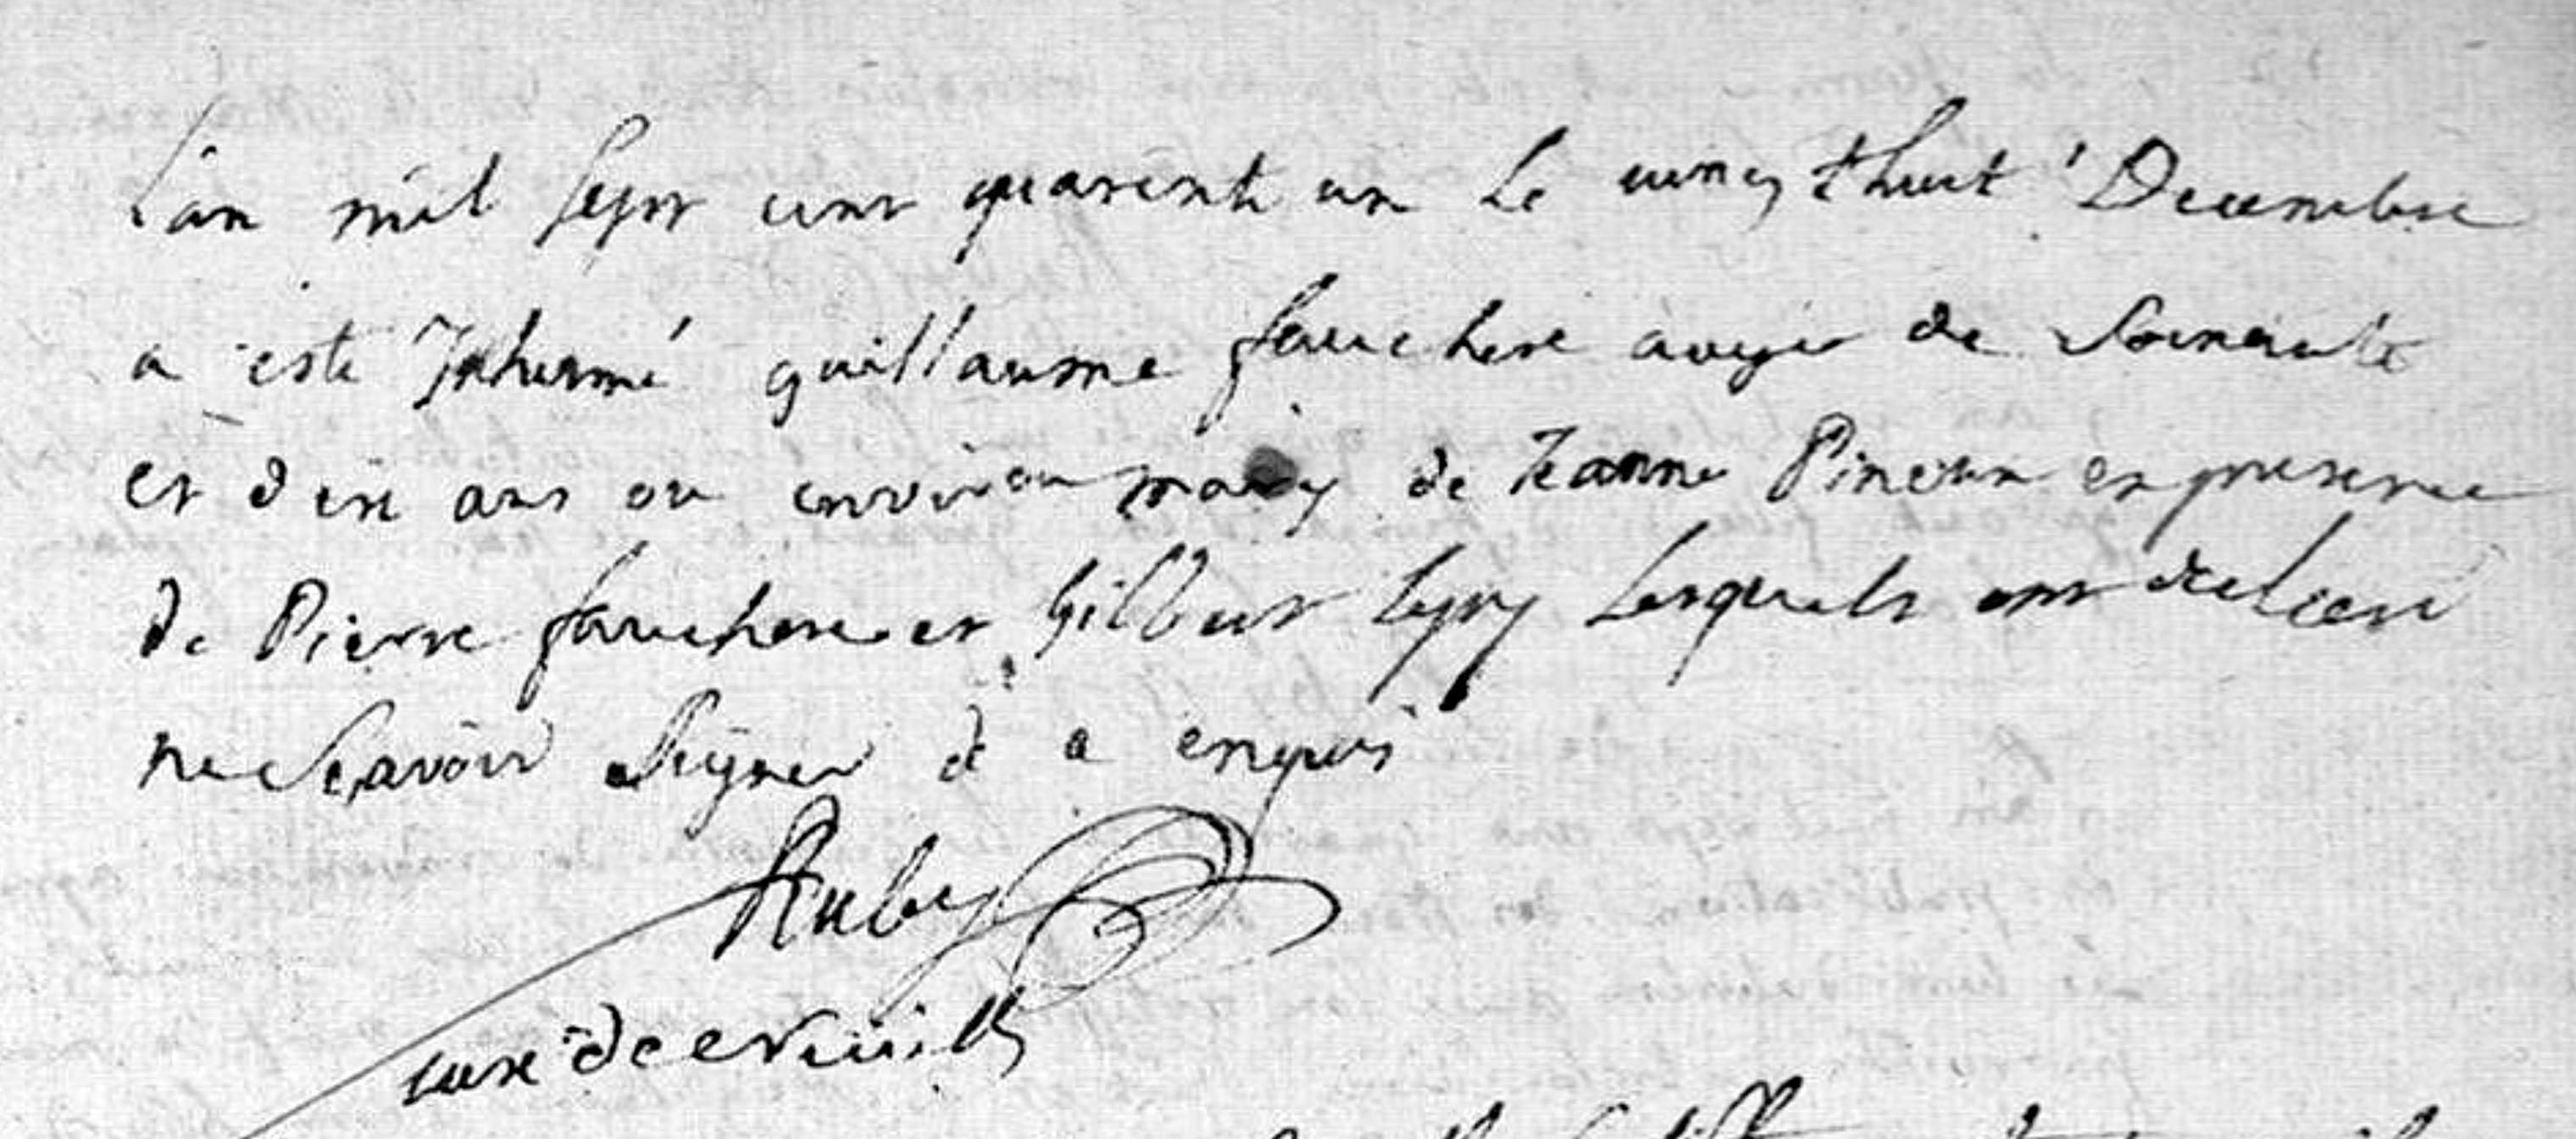 L'an mil sept cent quarent un Le vingt huit Decembre
a esté Inhumé guillaume fauchere agé de Soixante
et dix ans ou environ mary de Jeanne Pineau en presence
de Pierre fauchere et Gilbert lesquels ont declaré
ne Scavoir Signer de a enquis
Auby
curé de